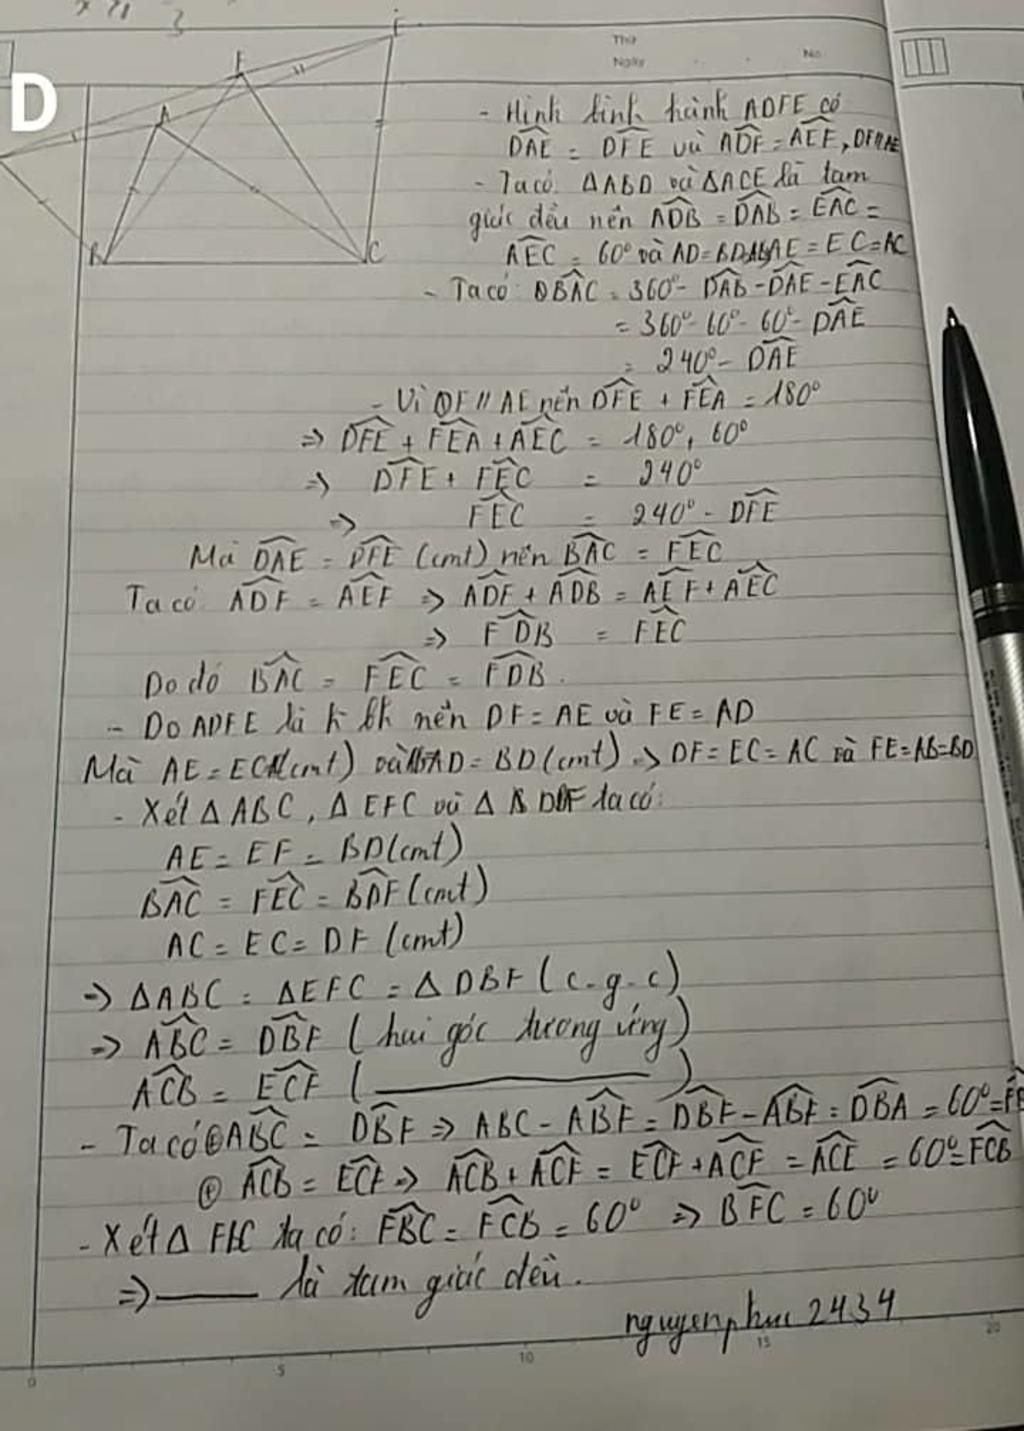 D
Thứ
Ngày
No.
F
E
A
B
C
- Hình bình hành ADFE có
DAE = DFE và ADF = AEF, DF//AE
- Ta có: ΔABD và ΔACE là tam
giác đều nên ADB = DAB = EAC =
AEC = 60° và AD=BD=AB, AE=EC=AC
- Ta có: BAC = 360° - DAB - DAE - EAC
= 360° - 60° - 60° - DAE
= 240° - DAE
- Vì DF // AE nên DFE + FEA = 180°
=> DFE + FEA + AEC = 180° + 60°
=> DFE + FEC = 240°
=> FEC = 240° - DFE
Mà DAE = DFE (cmt) nên BAC = FEC
Ta có: ADF = AEF => ADF + ADB = AEF + AEC
=> FDB = FEC
Do đó BAC = FEC = FDB.
- Do ADFE là h bh nên DF = AE và FE = AD
Mà AE = EC (cmt) và AD = BD (cmt) => DF = EC = AC và FE = AB = BD
- Xét Δ ABC, Δ EFC và Δ DBF ta có:
AE = EF = BD (cmt)
BAC = FEC = BDF (cmt)
AC = EC = DF (cmt)
=> ΔABC = ΔEFC = ΔDBF (c-g-c)
=> ABC = DBF (hai góc tương ứng)
ACB = ECF ( ——— )
- Ta có ⊕ ABC = DBF => ABC - ABF = DBF - ABF = DBA = 60° =
⊕ ACB = ECF => ACB + ACF = ECF + ACF = ACE = 60° = FCB
- Xét Δ FBC ta có: FBC = FCB = 60° => BFC = 60°
=> ——— là tam giác đều.
nguyenphuc2434
0 5 10 15 20